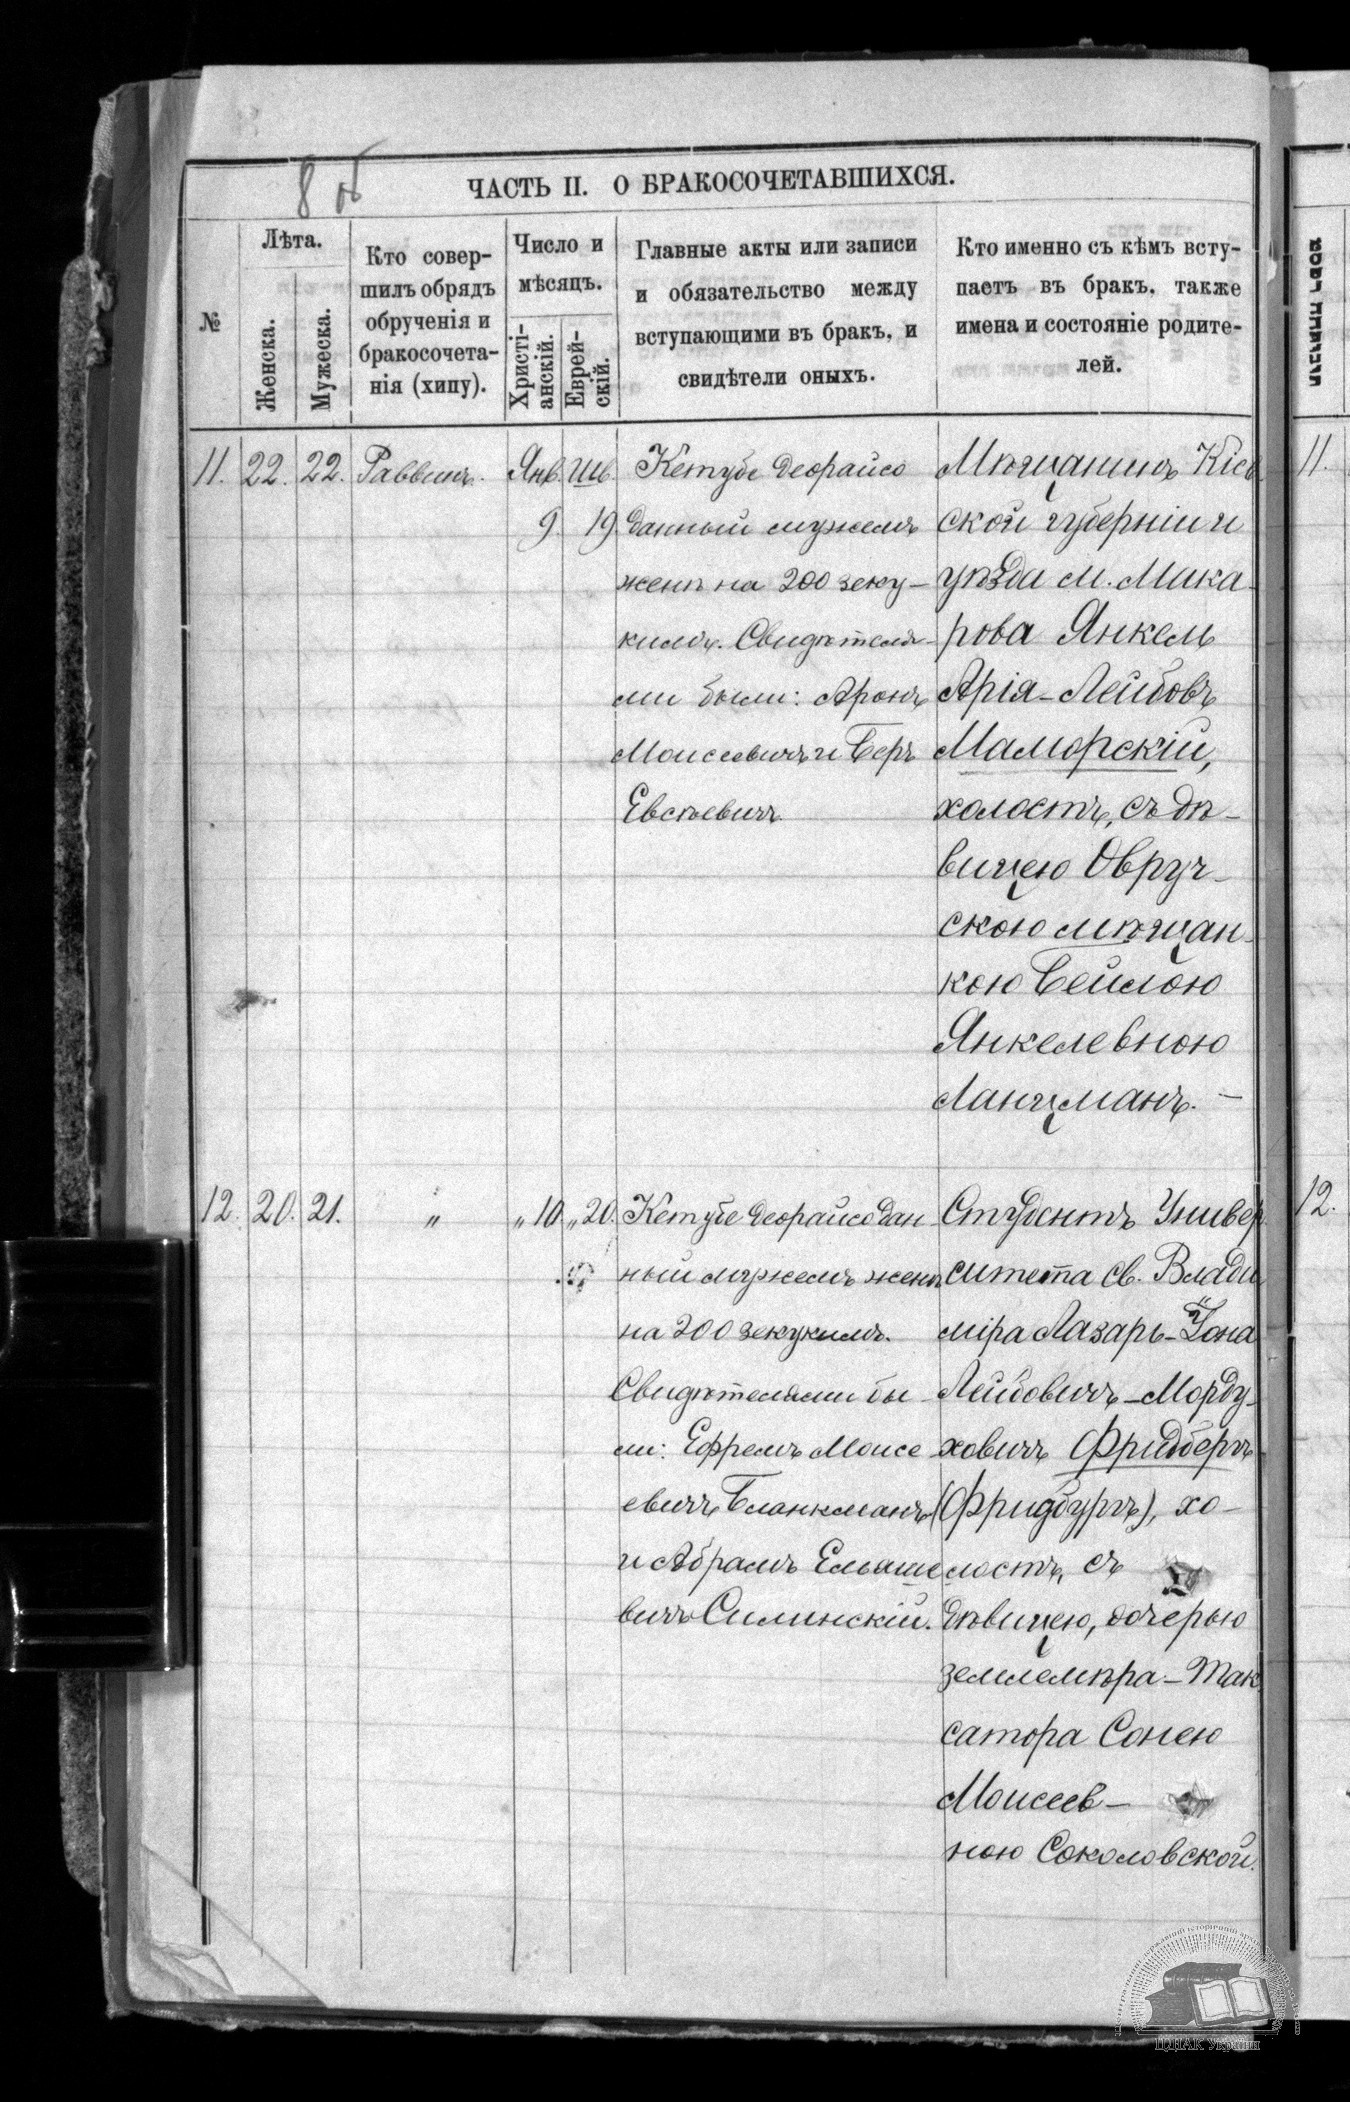 8 об
ЧАСТЬ II. О БРАКОСОЧЕТАВШИХСЯ.
№
Лѣта.
Женска.
Мужеска.
Кто совер-
шилъ обрядъ
обрученія и
бракосочета-
нія (хипу).
Число и
мѣсяцъ.
Христі-
анскій.
Еврей-
скій.
Главные акты или записи
и обязательство между
вступающими въ бракъ, и
свидѣтели оныхъ.
Кто именно съ кѣмъ всту-
паетъ въ бракъ. также
имена и состояніе родите-
лей.
11. 22. 22. Раввинъ. Янв. Шв.
9. 19.
Кетубе деорайсо
данный мужемъ
женѣ на 200 зеку-
кимъ. Свидѣтеля-
ми были: Аронъ
Моисеевичъ и Беръ
Евсѣевичъ
Мѣщанинъ Кіев
ской губерніи и
уѣзда м. Мака-
рова Янкель
Арія-Лейбовъ
Маморскій,
холостъ, съ дѣ-
вицею Овруч-
скою мѣщан-
кою Бейлою
Янкелевною
Ланцманъ. —
12. 20. 21. " " 10. " 20.
Кетубе деорайсо дан-
ный мужемъ женѣ
на 200 зекукимъ.
Свидѣтелями бы-
ли: Ефремъ Моисе
евичъ Бланкманъ
и Абрамъ Ельяше
вичъ Силинскій.
Студентъ Универ
ситета св. Влади
міра Лазарь-Іона
Лейбовичъ-Морду-
ховичъ Фридбергъ
(Фридбургъ), хо-
лостъ, съ
дѣвицею, дочерью
землемѣра-так
сатора Сонею
Моисеев-
ною Соколовской.
11.
12.
ЦДІАК України